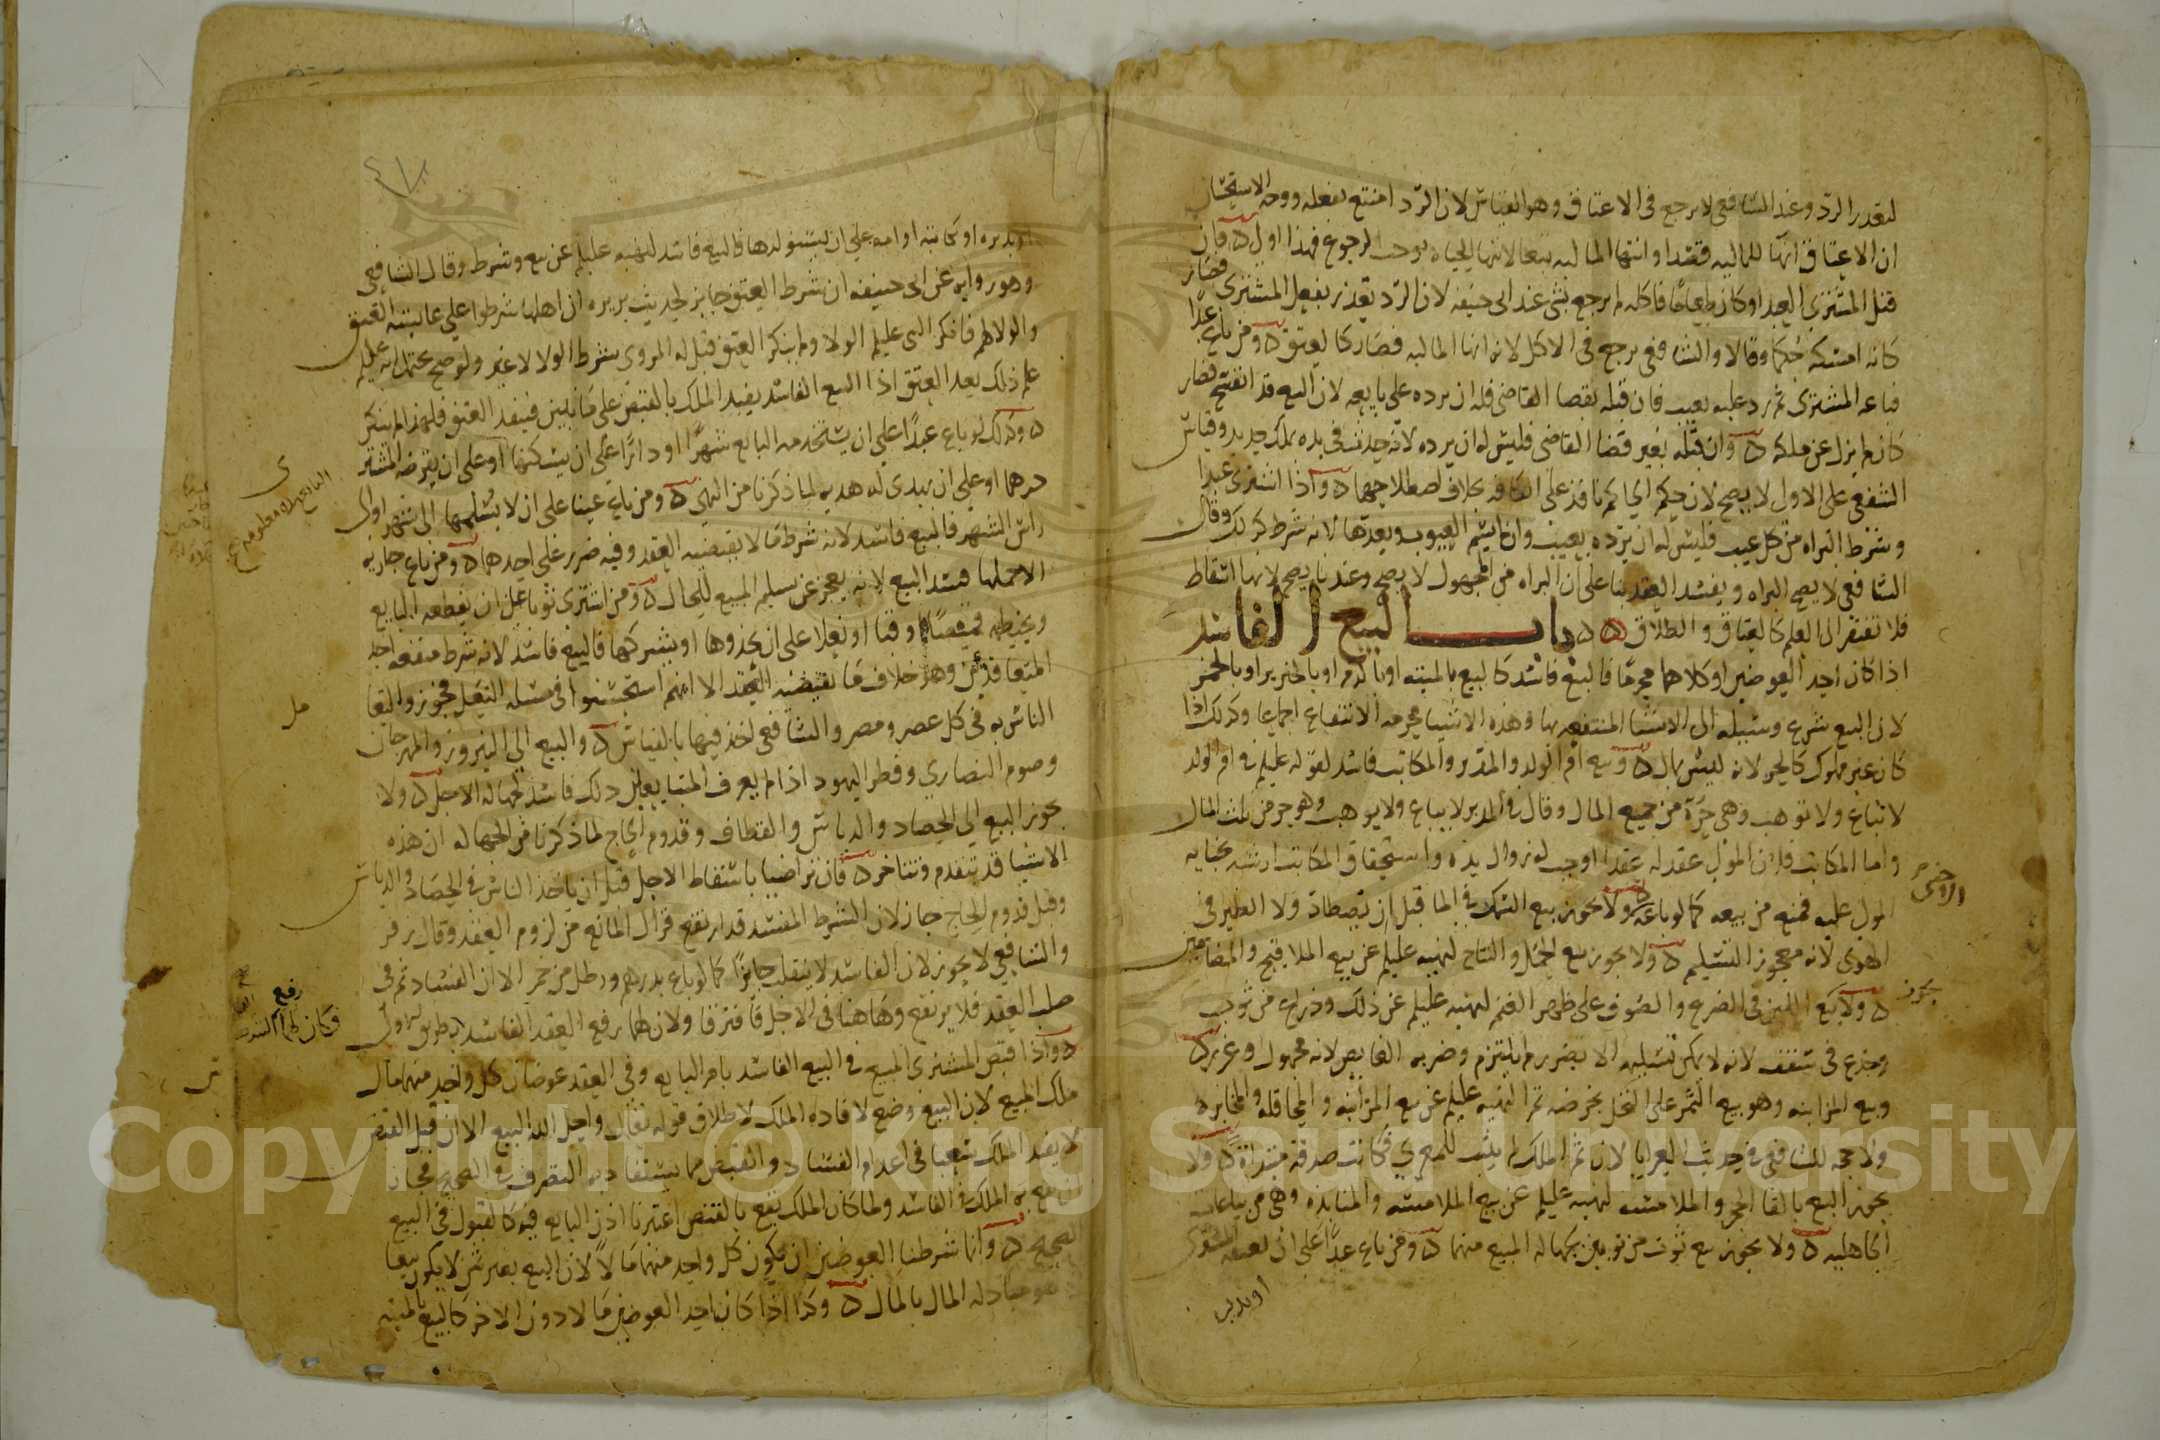 لتعذر الرد وعند الشافعي لا يرجع في الاعتاق وهو القياس لان الرد امتنع بفعله ووجه الاستحسان
ان الاعتاق انها للماليه قصدا وانتها الماليه تبعا لانتها الحياه يوجب الرجوع فهذا اولى ٥ فان
قتل المشتري العبد او كان طعاما فاكله لم يرجع بشي عند ابي حنيفه لان الرد تعذر بفعل المشتري فصار
كانه امسكه حكما وقالا والشافعي يرجع في الاكل لانه انها الماليه فصار كالعتق ٥ ومن باع عبدا
فباعه المشتري ثم رد عليه بعيب فان قبله بقضا القاضي فله ان يرده على بايعه لان البيع قد انفسخ فصار
كان لم يزل عن ملكه ٥ وان قبله بغير قضا القاضي فليس له ان يرده لانه حدث في يده بملك جديد وقياس
الشفعي على الاول لا يصح لان حكم الحاكم نافذ على الكافه بخلاف اصطلاحهما ٥ واذا اشترى عبدا
وشرط البراه من كل عيب فليس له ان يرده بعيب وان لم يسم العيوب ويعدها لانه شرط كذلك وقال
الشافعي لا يصح البراه ويفسد العقد بنا على ان البراه من المجهول لا يصح وعندنا يصح لانها اسقاط
فلا تفتقر الى العلم كالعتاق والطلاق ٥ ٥ باب البيع الفاسد
اذا كان احد العوضين او كلاهما محرما فالبيع فاسد كالبيع بالميته او بالدم او بالخنزير او بالخمر
لان البيع شرع وسيله الى الاشيا المنتفع بها وهذه الاشيا محرمه الانتفاع اجماعا وكذلك اذا
كان غير مملوك كالحر لانه ليس بمال ٥ وبيع ام الولد والمدبر والمكاتب فاسد لقوله عليلم في ام الولد
لا تباع ولا توهب وهي حرة من جميع المال وقال في المدبر لا يباع ولا يوهب وهو حر من ثلث المال
واما المكاتب فلان المولى عقد له عقدا اوجب له زوال يده واستحقاق المكاتب ارش جنايه
المولى عليه فمنع من بيعه كما لو باعه ٥ ولا يجوز بيع السمك في الما قبل ان يصطاد ولا الطير في
الهوى لانه معجوز التسليم ٥ ولا يجوز بيع الحمل والنتاج لنهيه عليلم عن بيع الملاقيح والمضامين
٥ ولا بيع اللبن في الضرع والصوف على ظهر الغنم لنهيه عليلم عن ذلك وذراع من ثوب
وجذع في سقف لانه لا يمكن تسليمه الا بضرر لم يلتزم وضربه القانص لانه مجهول وغرر ٥
وبيع المزابنه وهو بيع الثمر على النخل بخرصه تمرا لنهيه عليلم عن بيع المزابنه والمحاقله والمخابره
ولا حجه للشافعي في حديث العرايا لان ثم الملك لم يثبت للمعرى فكانت صدقه مبتداة ٥ ولا
يجوز البيع بالقا الحجر والملامسه لنهيه عليلم عن بيع الملامسه والمنابذه وهي من بياعات
الجاهليه ٥ ولا يجوز بيع ثوب من ثوبين لجهاله المبيع منهما ٥ ومن باع عبدا على ان يعتقه المشتري
او يدبره
الاخرى
او يدبره او يكاتبه او امه على ان يستولدها فالبيع فاسد لنهيه عليلم عن بيع وشرط وقال الشافعي
وهو روايه عن ابي حنيفه ان شرط العتق جايز لحديث بريره ان اهلها شرطوا على عايشه العتق
والولا لهم فانكر النبي عليلم الولا ولم ينكر العتق قيل له المروي شرط الولا لا غير ولو صح يحتمل انه عليلم
علم ذلك بعد العتق اذا البيع الفاسد يفيد الملك بالقبض على ما نبين فينفذ العتق فلهذا لم ينكر
٥ وكذلك لو باع عبدا على ان يستخدمه البايع شهرا او دارا على ان يسكنها او على ان يقرضه المشتري
درهما او على ان يهدي له هديه لما ذكرنا من النهي ٥ ومن باع عينا على ان لا يسلمها الى شهر او الى
راس الشهر فالبيع فاسد لانه شرط ما لا يقتضيه العقد وفيه ضرر على احدهما ٥ ومن باع جاريه
الا حملها فسد البيع لانه يعجز عن تسليم المبيع للحال ٥ ومن اشترى ثوبا على ان يقطعه البايع
ويخيطه قميصا او قبا او نعلا على ان يحذوها او يشركها فالبيع فاسد لانه شرط منفعه احد
المتعاقدين وهو خلاف ما يقتضيه العقد الا انهم استحسنوا في مسله النعل فجوزوا لتعا
الناس به في كل عصر ومصر والشافعي اخذ فيها بالقياس ٥ والبيع الى النيروز والمهرجان
وصوم النصارى وفطر اليهود اذا لم يعرف المتبايعان ذلك فاسد لجهاله الاجل ٥ ولا
يجوز البيع الى الحصاد والدياس والقطاف وقدوم الحاج لما ذكرنا من الجهاله ان هذه
الاشيا قد تتقدم وتتاخر ٥ فان تراضيا باسقاط الاجل قبل ان ياخذ الناس في الحصاد والدياس
وقبل قدوم الحاج جاز لان الشرط المفسد قد ارتفع فزال المانع من لزوم العقد وقال زفر
والشافعي لا يجوز لان الفاسد لا ينقلب جايزا كما لو باع بدرهم ورطل من خمر الا ان الفساد ثم في
صلب العقد فلا يرتفع وهاهنا في الاجل فافترقا ولان لهما رفع العقد الفاسد
٥ واذا قبض المشتري المبيع في البيع الفاسد بامر البايع وفي العقد عوضان كل واحد منهما مال
ملك المبيع لان البيع وضع لافاده الملك لاطلاق قوله تعالى واحل الله البيع الا ان قبل القبض
لا يفيد الملك سعيا في اعدام الفساد والقبض مما يستفاد به التصرف في الصحيح فجاز
ان يقع به الملك في الفاسد ولما كان الملك يقع بالقبض اعتبرنا اذن البايع فيه كالقبول في البيع
الصحيح ٥ وانما شرطنا العوضين ان يكون كل واحد منهما مالا لان البيع بغير ثمن لا يكون بيعا
هو مبادله المال بالمال ٥ وكذا اذا كان احد العوضين مالا دون الاخر كالبيع بالميته
رفع
Copyright © King Saud University